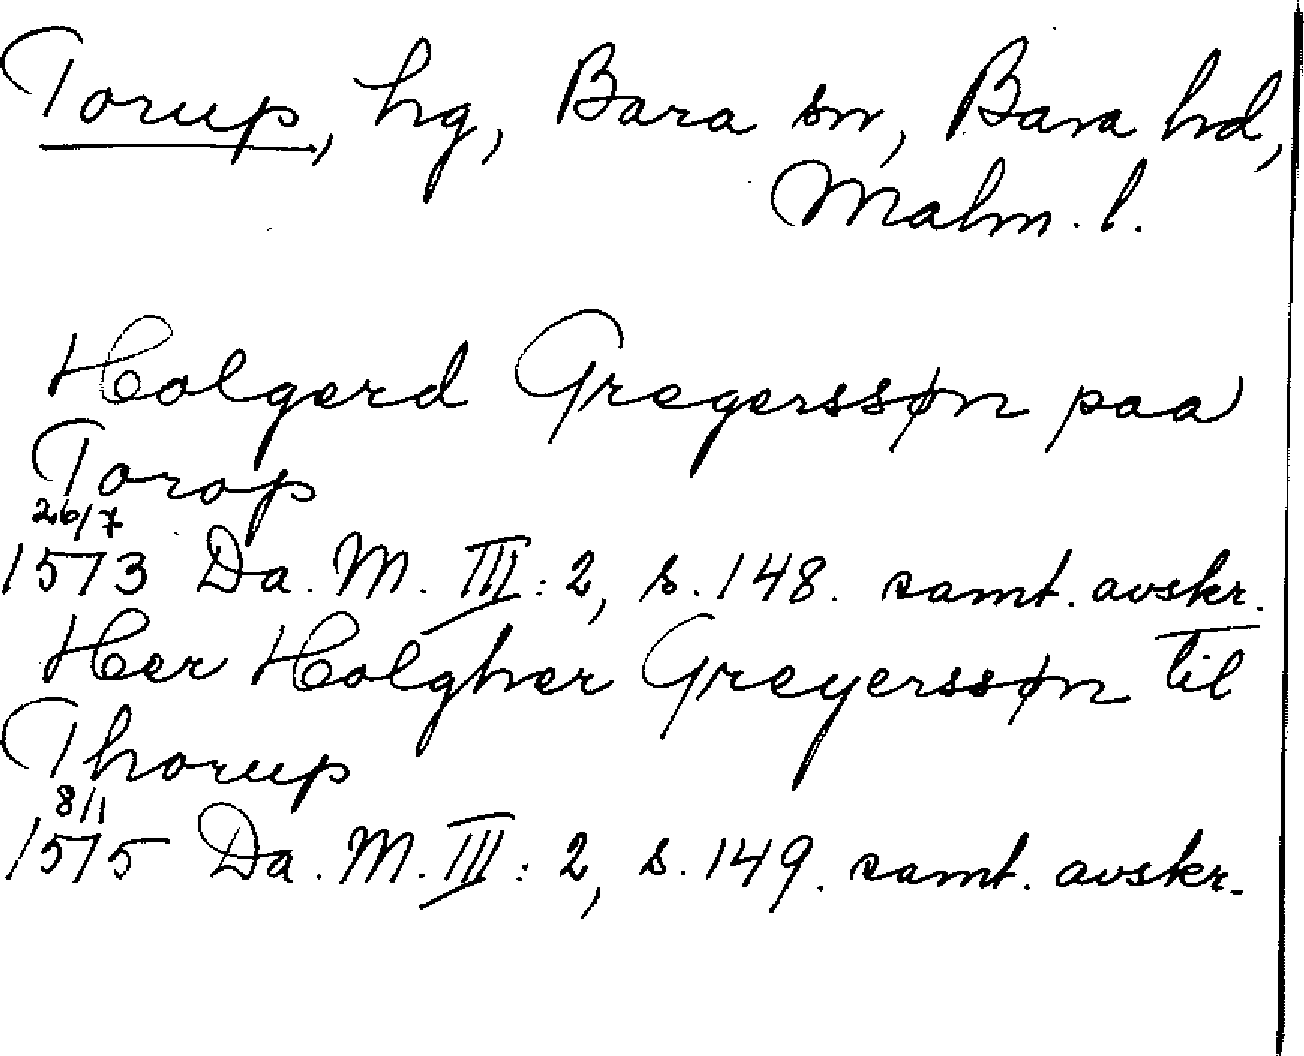 Torup, hg, Bara sn, Bara hd,
Malm. l.
Holgerd Gregerssøn paa
Torop
26/7
1573 Da. M. III: 2, s. 148. samt. avskr.
Her Holgher Greyerssøn til
Thorup
8/1
1575 Da. M. III: 2, s. 149. samt. avskr.